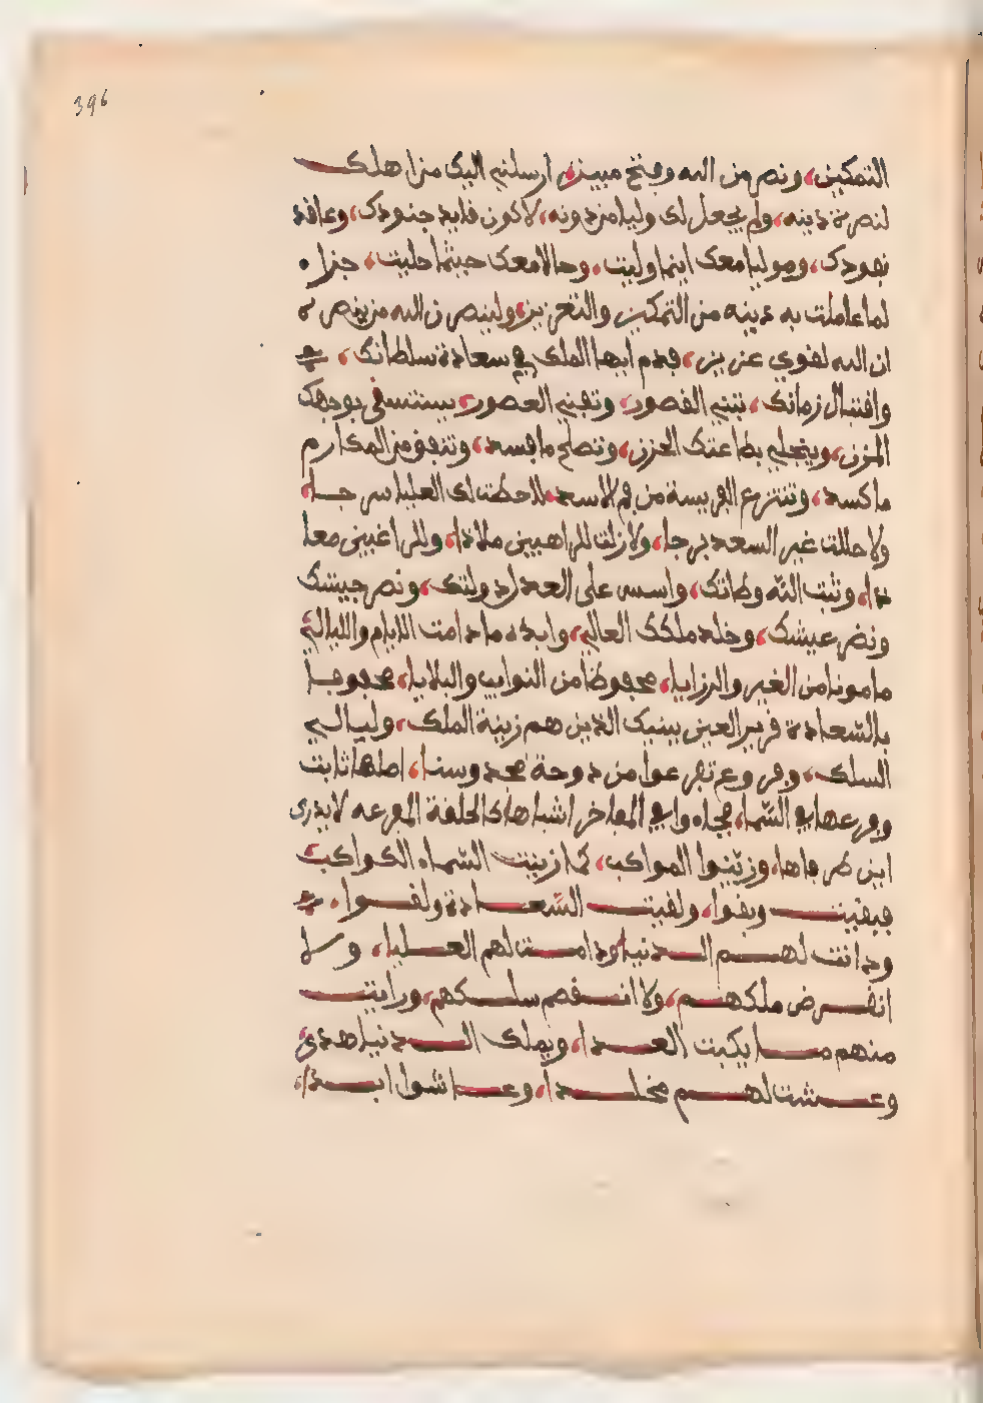 396
التمكين، ونصر من الله وفتح مبين، ارسلني اليك من اهلك
لنصرة دينه، ولم يجعل لك وليا من دونه، لاكون قايد جنودك، وعاقد
بنودك، ومواليا معك اينما وليت، وحالا معك حيثما حليت، جزاء
لما عاملت به دينه من التمكين والتعزيز، ولينصرن الله من ينصره
ان الله لقوي عزيز، فدم ايها الملك في سعادة سلطانك،
واقتبال زمانك، تبتني القصور، وتفني العصور، يستسقى بوجهك
المزن، وينجلي بطاعتك الحزن، وتصلح ما فسد، وتنفق من المكارم
ما كسد، وتنتزع الفريسة من فم الاسد، لاحطت لك العليا سرجا،
ولا حللت غير السعد برجا، ولا زلت للراهبين ملاذا، وللراغبين معا
ذا، وثبت الله وطاتك، واسس على العدل دولتك، ونصر جيشك
ونضر عيشك، وخلد ملكك العالي، وابده ما دامت الايام والليالي
مامونا من الغير والرزايا، محفوظا من النوايب والبلايا، محفوفا
بالسعادة قرير العين ببنيك الذين هم زينة الملك، وليالي
السلك، وفروع تفرعوا من دوحة مجد وسنا، اصلها ثابت
وفرعها في السما، فجاءوا في المفاخر اشباها كالحلقة المفرغه لا يدرى
اين طرفاها، وزينوا المواكب، كما زينت السماء الكواكب
فبقيت وبقوا، ولقيت السعادة ولقوا،
ودانت لهم الدنيا ودامت لهم العليا، ولا
انقرض ملكهم، ولا انفصم سلكهم، ورايت
منهم ما يكبت العدا، ويملك الدنيا هدى،
وعشت لهم مخلدا، وعاشوا ابدا،